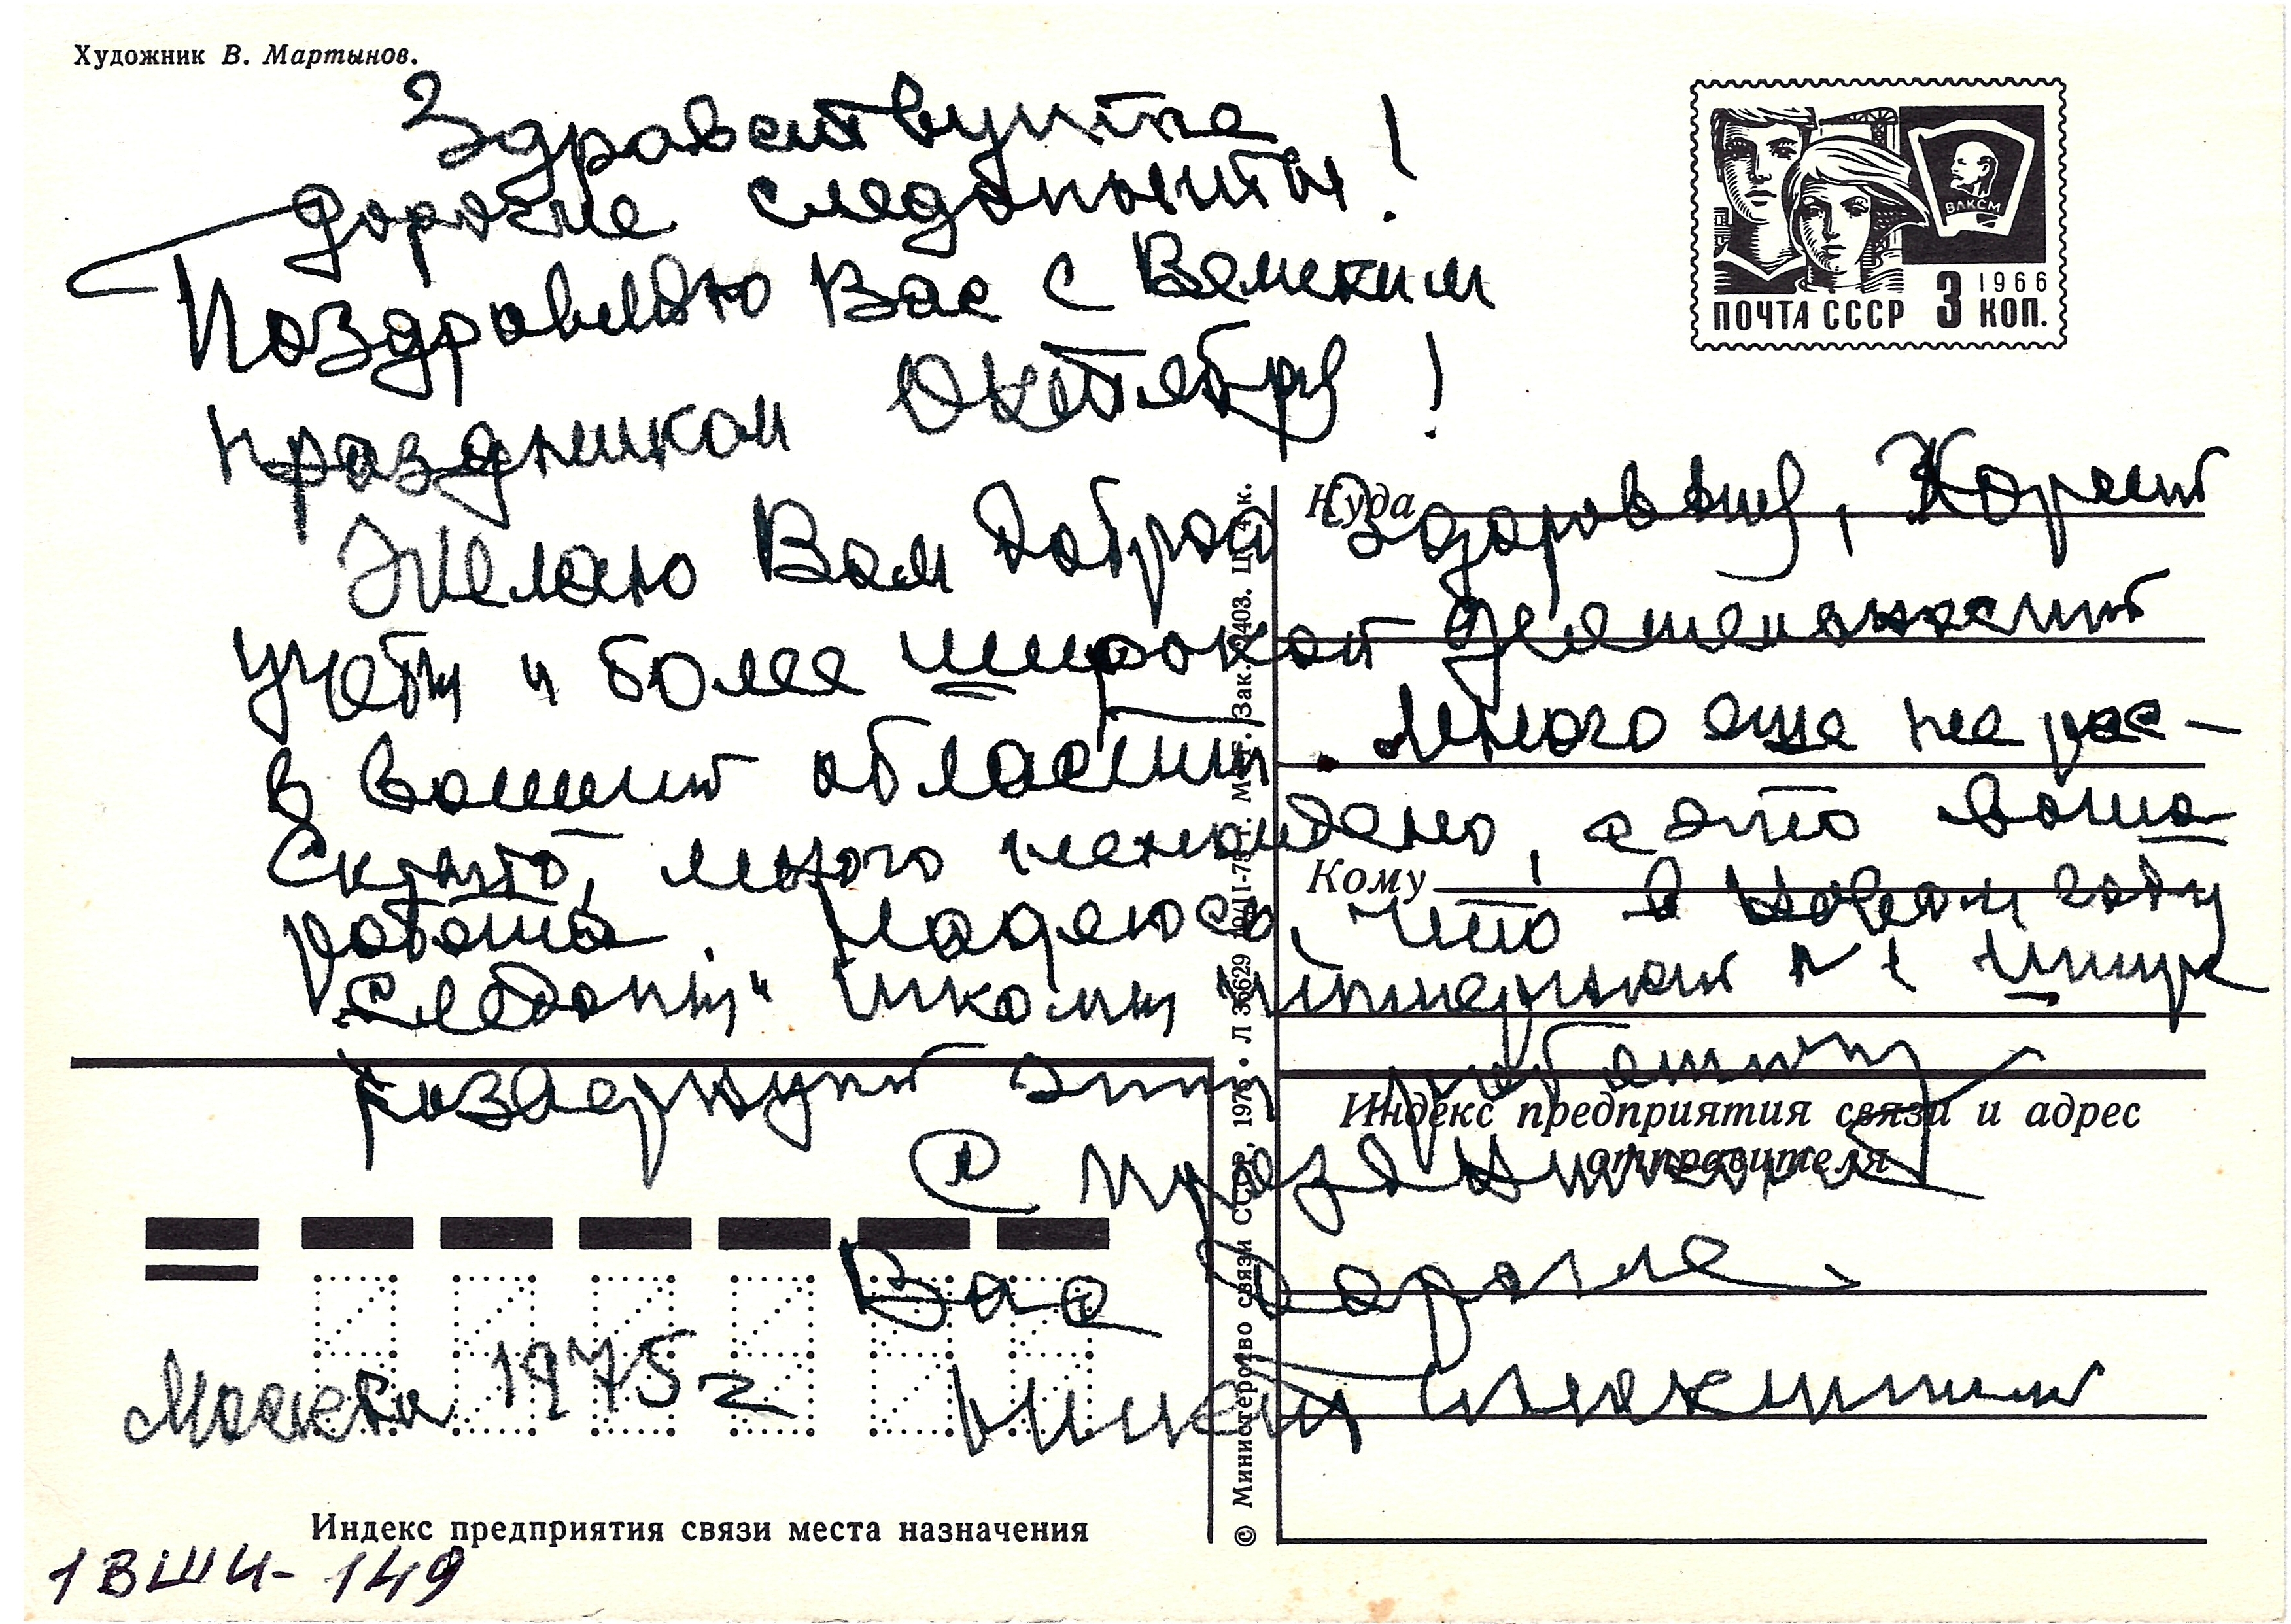 Художник В. Мартынов.
Здравствуйте
дорогие следопыты!
Поздравляю Вас с Великим
праздником Октября!
ПОЧТА СССР 3 КОП.
1966
ВЛКСМ
Желаю Вам добра здоровья, Хорошей
учебы и более широкой деятельности
в вашей области. Много еще не рас-
скрыто, много не найдено, а это ваша
работа. Надеюсь, что в Новом году
"Следопы" школы интернат № 1
развернут эту работу
С праздником
Вас дорогие
Москва 1975 г
Куда
Кому
Индекс предприятия связи и адрес
отправителя
Индекс предприятия связи места назначения
© Министерство связи СССР, 1975
1ВШИ-149